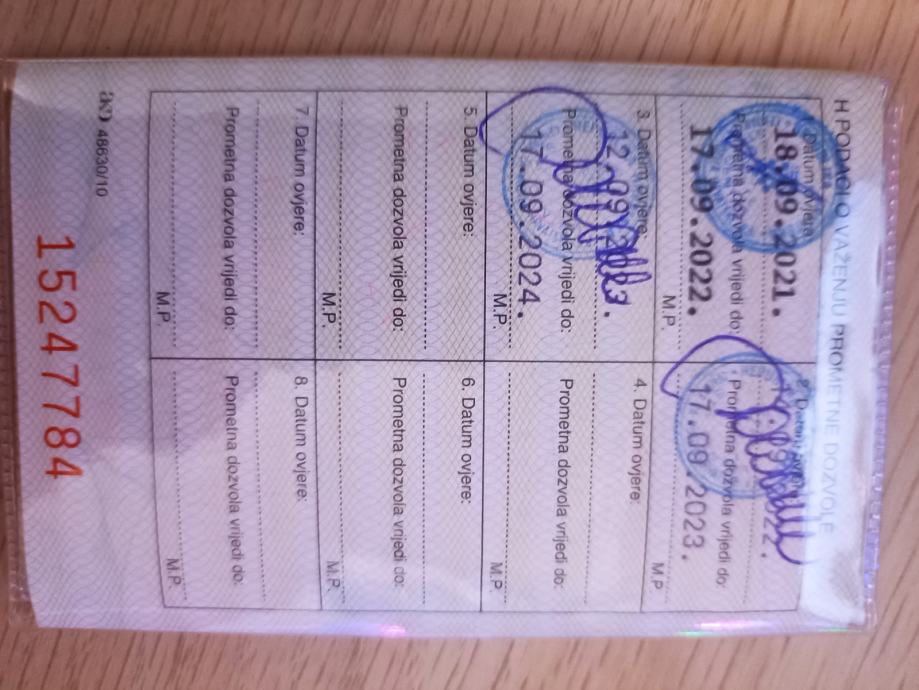 H PODACI O VAŽENJU PROMETNE DOZVOLE
Datum ovjere
18.09.2021.
Prometna dozvola vrijedi do:
17.09.2022.
M.P.
2. Datum ovjere:
Prometna dozvola vrijedi do:
17.09.2023.
M.P.
3. Datum ovjere:
Prometna dozvola vrijedi do:
17.09.2024.
M.P.
4. Datum ovjere:
Prometna dozvola vrijedi do:
M.P.
5. Datum ovjere:
Prometna dozvola vrijedi do:
M.P.
6. Datum ovjere:
Prometna dozvola vrijedi do:
M.P.
7. Datum ovjere:
Prometna dozvola vrijedi do:
M.P.
8. Datum ovjere:
Prometna dozvola vrijedi do:
M.P.
48630/10
15247784